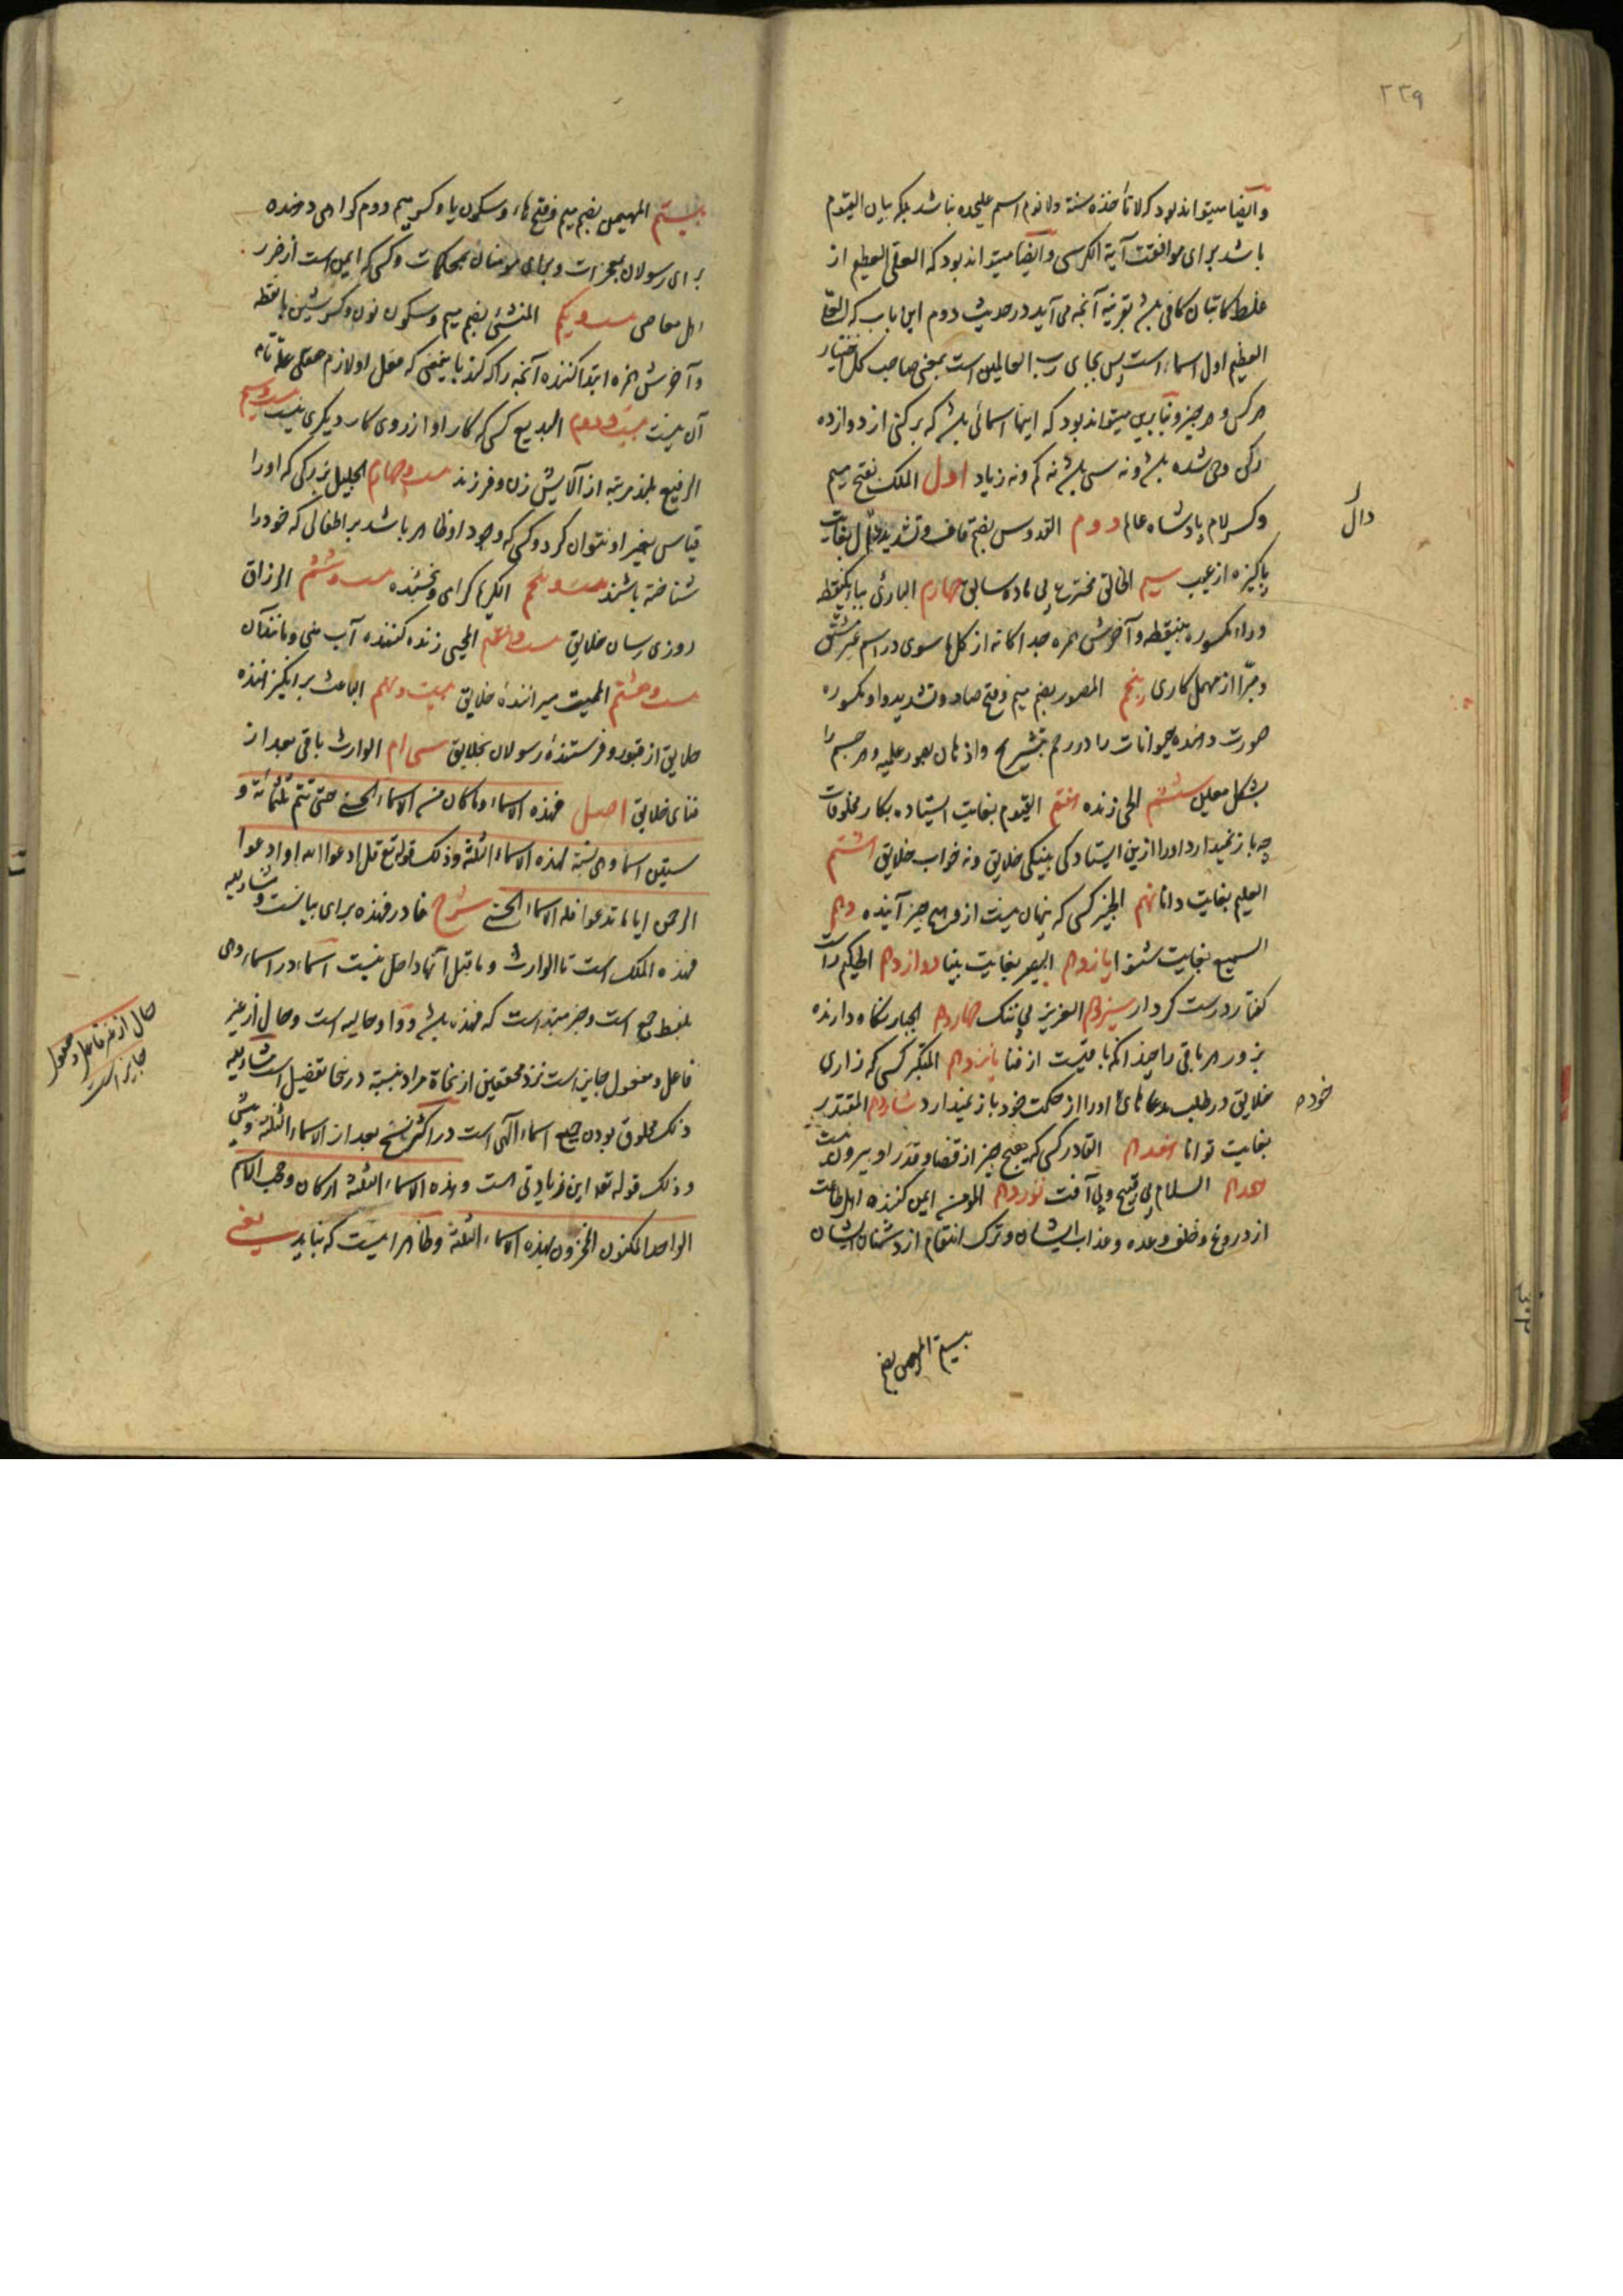 ۲۳۹
وایضا میتواند بود که لا تأخذه سنة ولا نوم اسم علیحده نباشد بلکه بیان القیوم
باشد برای موافقت آیة الکرسی وایضا میتواند بود که العلی العظیم از
غلط کاتبان کافی باشد بقرینه آنچه می آید در حدیث دوم این باب که العلی
العظیم اول اسماء است پس بجای رب العالمین است بمعنی صاحب کل اختیار
هر کس و هر چیز و بنابرین میتواند بود که اینها اسمائی باشد که بر رکنی از دوازده
رکن وحی شده باشد و نه سی باشد نه کم و نه زیاد اول الملک بفتح میم
وکسر لام پادشاه عالم دوم القدوس بضم قاف وتشدید دال بغایت
دال
پاکیزه از عیب سیم الخالق مخترع بی ماده سابق چهارم البارئ بباء یکنقطه
وراء مکسوره بینقطه وآخرش همزه جداگانه از کل ما سوی در اسم غیر مشتق
ومبرّا از مهمل کاری پنجم المصور بضم میم وفتح صاد وتشدید واو مکسوره
صورت دهنده حیوانات را در رحم بتشریح واذهان بصور علمیه وهر جسم را
بشکل معین ششم الحی زنده هفتم القیوم بغایت ایستاده بکار مخلوقات
چه باز نمیدارد او را ازین ایستادگی پینکی خلایق ونه خواب خلایق هشتم
العلیم بغایت دانا نهم الخبیر کسی که پنهان نیست ازو هیچ چیز آینده دهم
السمیع بغایت شنوا یازدهم البصیر بغایت بینا دوازدهم الحکیم راست
گفتار درست کردار سیزدهم العزیز بی ننگ چهاردهم الجبار نگاه دارنده
بزور هر باقی را چندانکه باقیست از فنا پانزدهم المتکبر کسی که زاری
خلایق در طلب مدعاهای خود او را از حکمت خود باز نمیدارد شانزدهم المقتدر
خود
بغایت توانا هفدهم القادر کسی که هیچ چیز از قضا وقدر او بیرون نیست
هجدهم السلام بی قبیح وبی آفت نوزدهم المؤمن ایمن کننده اهل طاعت
از دروغ وخلف وعده وعذاب ایشان وترک انتقام از دشمنان ایشان
بیستم المهیمن بضم
بیستم المهیمن بضم میم وفتح هاء وسکون یا وکسر میم دوم گواهی دهنده
برای رسولان بمعجزات وبرای مؤمنان بمحکمات وکسی که ایمن است از ضرر
اهل معاصی بیست ویکم المنشئ بضم میم وسکون نون وکسر شین بانقطه
وآخرش همزه ابتدا کننده آنچه را که کند باینمعنی که فعل او لازم عقلی علّة تامه
آن نیست بیست ودوم البدیع کسی که کار او از روی کار دیگری نیست بیست وسیم
الرفیع بلند مرتبه از آلایش زن وفرزند بیست وچهارم الجلیل بزرگی که او را
قیاس بغیر او نتوان کرد وکسی که وجود او ظاهر باشد بر اطفالی که خود را
شناخته باشند بیست وپنجم الکریم گرامی وبخشنده بیست وششم الرزاق
روزی رسان خلایق بیست وهفتم المحیی زنده کننده آب منی ومانند آن
بیست وهشتم الممیت میراننده خلایق بیست ونهم الباعث برانگیزاننده
خلایق از قبور وفرستنده رسولان بخلایق سی ام الوارث باقی بعد از
فنای خلایق اصل فهذه الاسماء وما کان من الاسماء الحسنی حتی تتم ثلثمائة و
ستین اسما وهی نسبة لهذه الاسماء الثلثة وذلک قوله تع قل ادعوا الله او ادعوا
الرحمن ایا ما تدعوا فله الاسماء الحسنی شرح فا در فهذه برای بیانست ومشار الیه
فهذه الملک است تا الوارث وما قبل آنها داخل نیست اسماء در اسماء وهی
بلفظ جمع است وخبر مبتدا است که فهذه باشد وواو حالیه است وحال از غیر
حال از غیر فاعل ومفعول
جایز است
فاعل ومفعول جایز است نزد محققین از نحاة مراد بنسبة در اینجا تفضیل است مشار الیه
ذلک مخلوق بودن جمیع اسماء الهی است در اکثر نسخ بعد از الاسماء الثلثة وپیش
وذلک قوله تعه این زیادتی است وهذه الاسماء الثلثة ارکان وحجب الاسم
الواحد المکنون المخزون بهذه الاسماء الثلثة وظاهر اینست که نباید یعنی